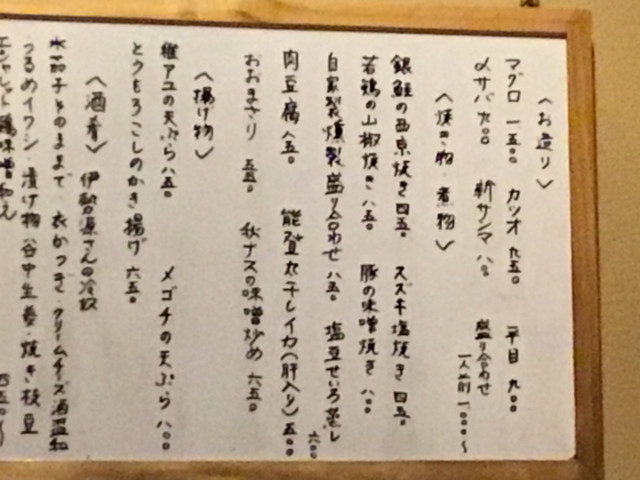 〈お造り〉
マグロ 一五〇 カツオ 九五〇 平目 九〇〇
〆サバ 九〇〇 新サンマ 八〇〇 盛り合わせ 一人前 一〇〇〇〜
〈焼き物・煮物〉
銀鮭の西京焼き 四五〇 スズキ塩焼き 四五〇
若鶏の山椒焼き 八五〇 豚の味噌焼き 八〇〇
自家製燻製盛り合わせ 八五〇 塩豆せいろ蒸し 六〇〇
肉豆腐 八五〇 能登丸干しイカ(肝入り) 五〇〇
おおまさり 五五〇 秋ナスの味噌炒め 六五〇
〈揚げ物〉
稚アユの天ぷら 八五〇 メゴチの天ぷら 八〇〇
とうもろこしのかき揚げ 六五〇
〈酒肴〉 伊勢源さんの冷奴
水茄子そのままで・衣かつぎ・クリームチーズ酒盗和
うるめイワシ・漬け物・谷中生姜・焼き枝豆
エシャレット鶏味噌和え 四五〇